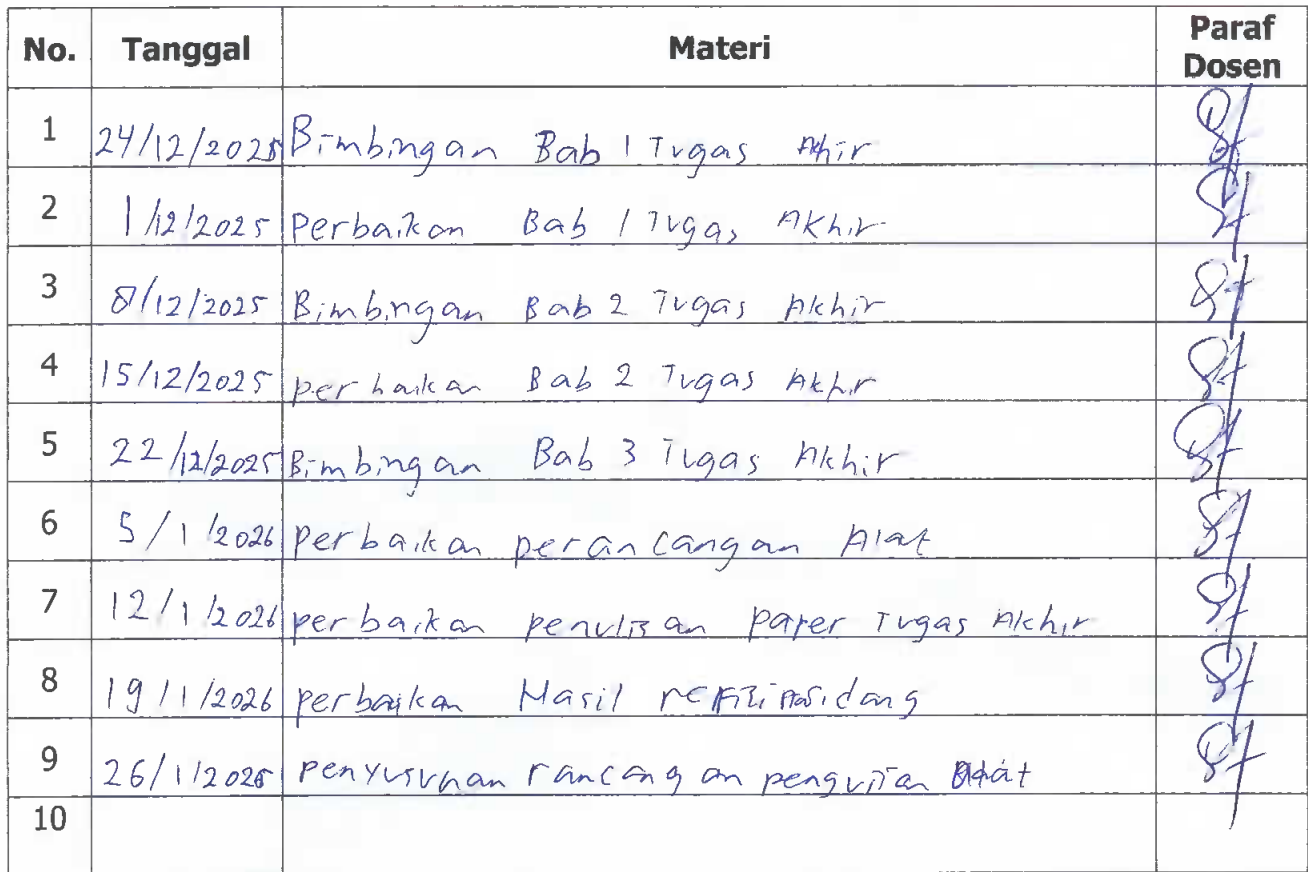 No. Tanggal Materi Paraf Dosen
1 24/12/2025 Bimbingan Bab 1 Tugas Ahir
2 1/12/2025 Perbaikan Bab 1 Tugas Akhir
3 8/12/2025 Bimbingan Bab 2 Tugas Akhir
4 15/12/2025 perbaikan Bab 2 Tugas Akhir
5 22/12/2025 Bimbingan Bab 3 Tugas Akhir
6 5/1/2026 Perbaikan perancangan Alat
7 12/1/2026 perbaikan penulisan paper Tugas Akhir
8 19/1/2026 perbaikan Hasil
9 26/1/2026 penyusunan rancangan pengujian Alat
10